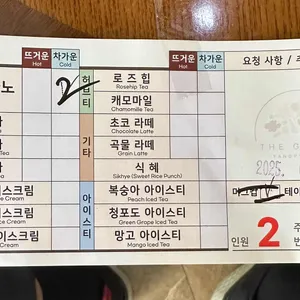 뜨거운 차가운 뜨거운 차가운 요청 사항 /
Hot Cold Hot Cold
노 2 허브티 로즈힙
Rosehip Tea
캐모마일
Chamomille Tea
기타 초코 라떼
Chocolate Latte
곡물 라떼
Grain Latte
식혜
Sikhye (Sweet Rice Punch)
이스크림 아이스티 복숭아 아이스티
Cream Peach Iced Tea
이스크림 청포도 아이스티
Cream Green Grape Iced Tea
이스크림 망고 아이스티
Cream Mango Iced Tea
THE
2025.
머그컵 V 테이
인원 2